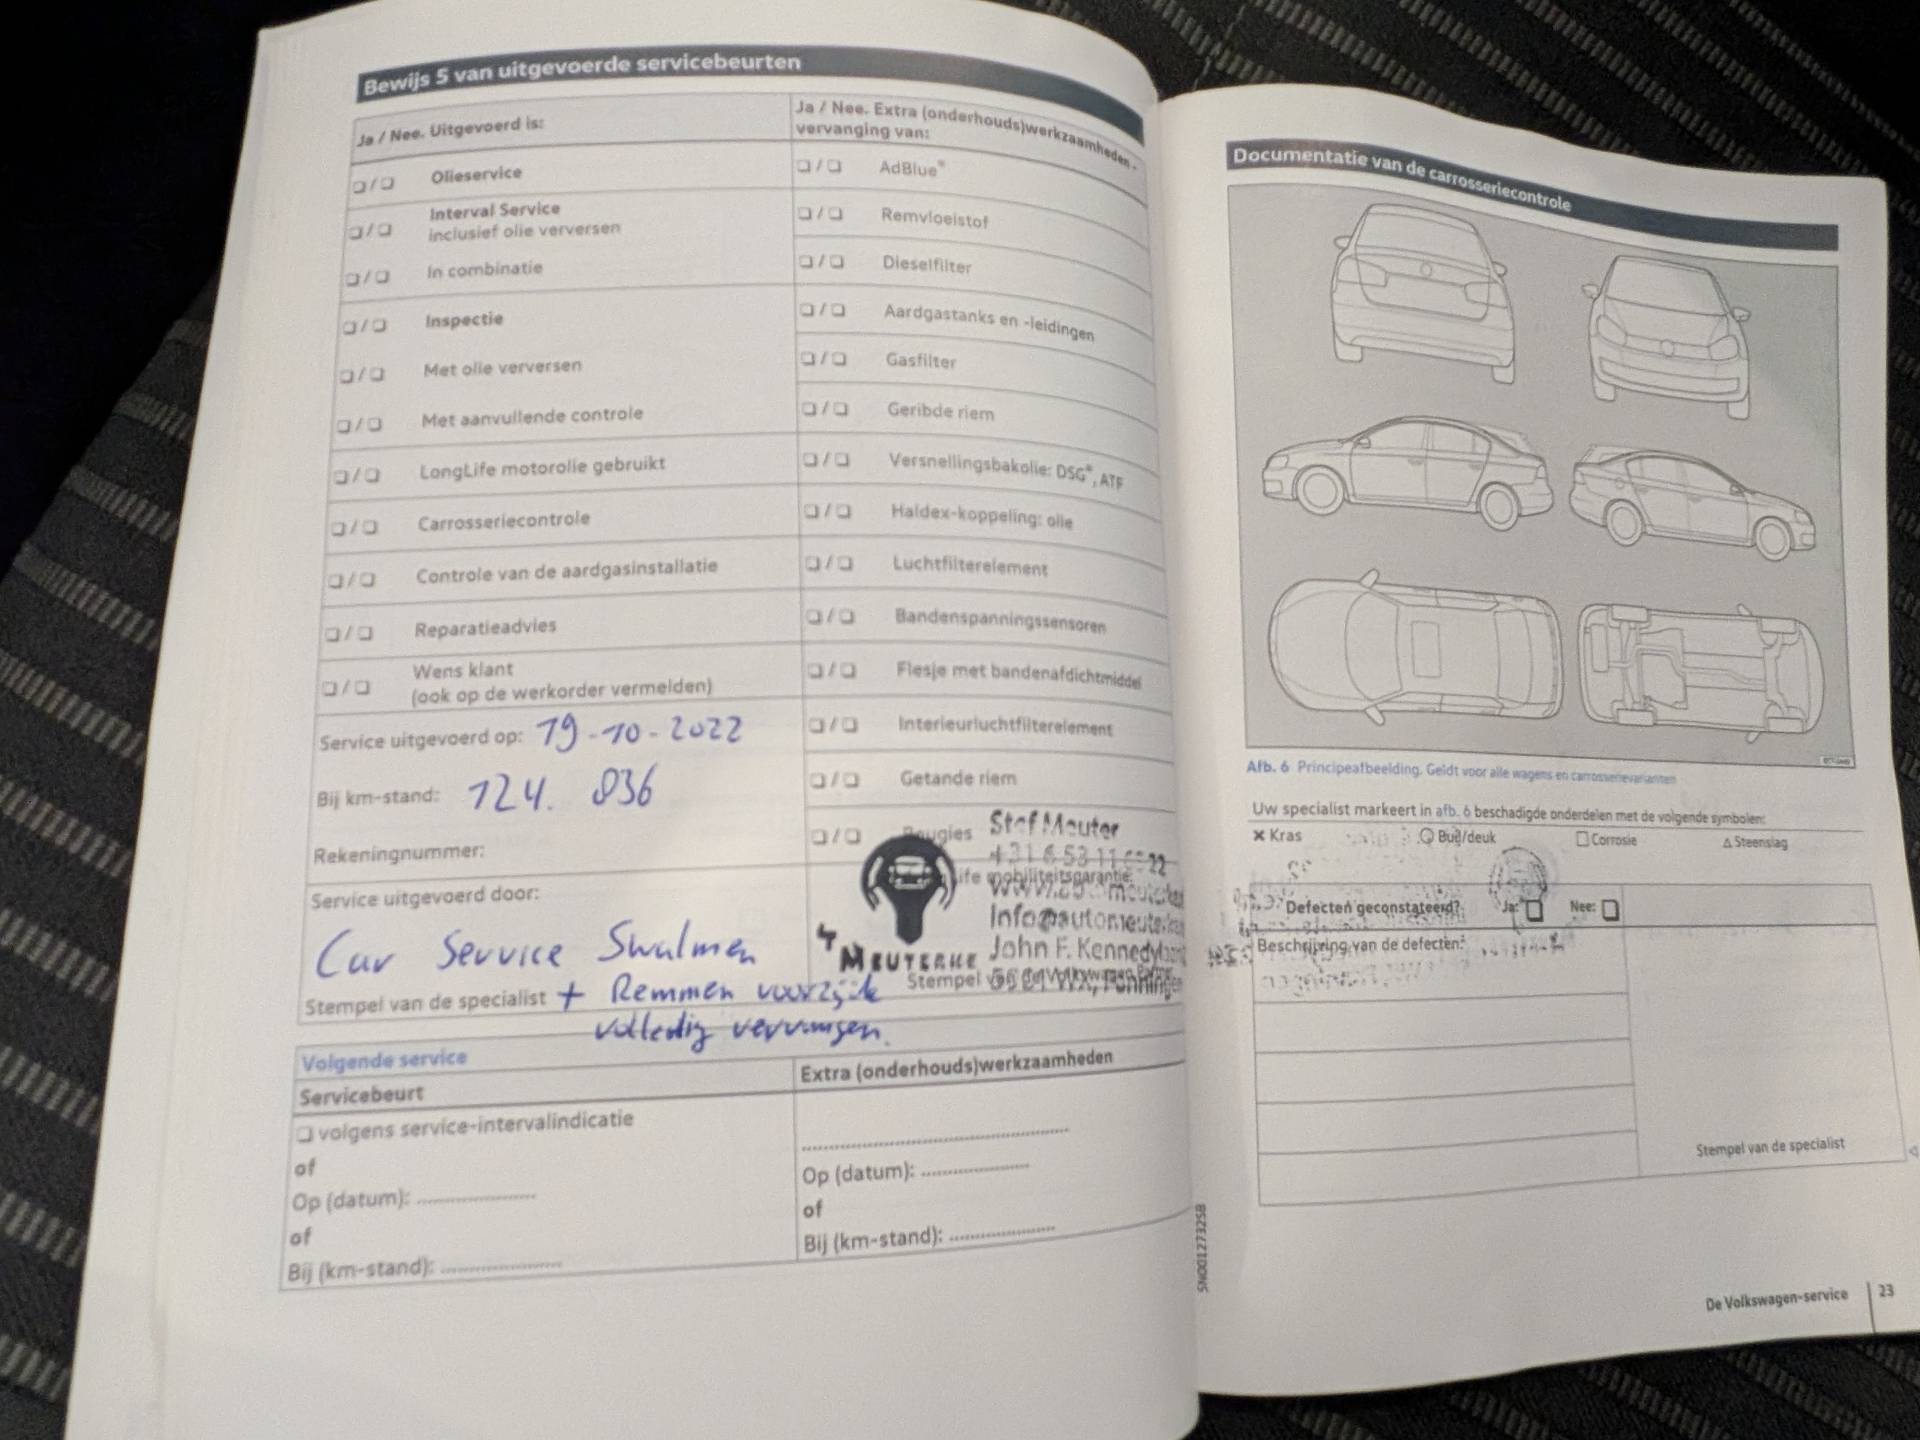 Bewijs 5 van uitgevoerde servicebeurten
Ja / Nee. Uitgevoerd is:
❏ / ❏ Olieservice
❏ / ❏ Interval Service
inclusief olie verversen
❏ / ❏ In combinatie
❏ / ❏ Inspectie
❏ / ❏ Met olie verversen
❏ / ❏ Met aanvullende controle
❏ / ❏ LongLife motorolie gebruikt
❏ / ❏ Carrosseriecontrole
❏ / ❏ Controle van de aardgasinstallatie
❏ / ❏ Reparatieadvies
❏ / ❏ Wens klant
(ook op de werkorder vermelden)
Service uitgevoerd op: 19-10-2022
Bij km-stand: 124.836
Rekeningnummer:
Service uitgevoerd door:
Car Service Swalmen
Stempel van de specialist + Remmen voorzijde
volledig vervangen.
Ja / Nee. Extra (onderhouds)werkzaamheden -
vervanging van:
❏ / ❏ AdBlue®
❏ / ❏ Remvloeistof
❏ / ❏ Dieselfilter
❏ / ❏ Aardgastanks en -leidingen
❏ / ❏ Gasfilter
❏ / ❏ Geribde riem
❏ / ❏ Versnellingsbakolie: DSG®, ATF
❏ / ❏ Haldex-koppeling: olie
❏ / ❏ Luchtfilterelement
❏ / ❏ Bandenspanningssensoren
❏ / ❏ Flesje met bandenafdichtmiddel
❏ / ❏ Interieurluchtfilterelement
❏ / ❏ Getande riem
❏ / ❏ Bougies
mobiliteitsgarantie:
Stef Meuter
John F. Kennedy
Stempel
Volgende service
Servicebeurt
❏ volgens service-intervalindicatie
of
Op (datum):
of
Bij (km-stand):
Extra (onderhouds)werkzaamheden
Op (datum):
of
Bij (km-stand):
SN0012732SB
Documentatie van de carrosseriecontrole
Afb. 6 Principeafbeelding. Geldt voor alle wagens en carrosserievarianten
Uw specialist markeert in afb. 6 beschadigde onderdelen met de volgende symbolen:
✕ Kras ○ Buil/deuk □ Corrosie △ Steenslag
Defecten geconstateerd? Ja: ❏ Nee: ❏
Beschrijving van de defecten:
Stempel van de specialist
De Volkswagen-service 23